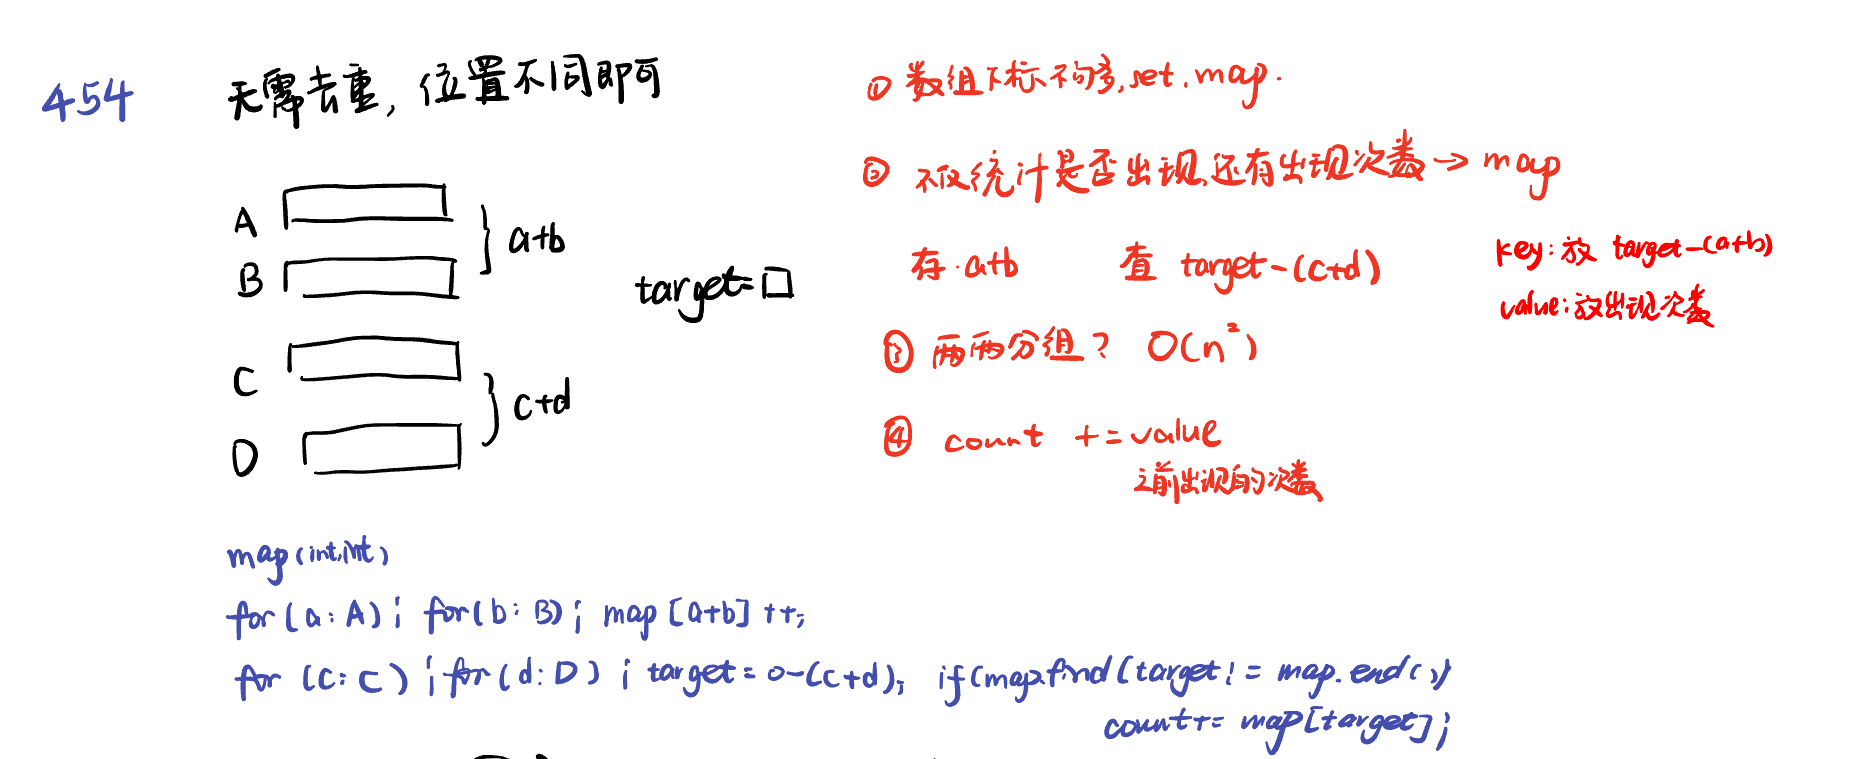 454
无需去重，位置不同即可
A
B
a+b
C
D
c+d
target=□
① 数组下标不够多,set,map.
② 不仅统计是否出现,还有出现次数→map
存·a+b 查 target-(c+d)
key:放 target-(a+b)
value:放出现次数
③ 两两分组? O(n²)
④ count +=value
之前出现的次数
map(int,int)
for(a:A); for(b:B); map[a+b]++;
for (c:C); for(d:D); target=0-(c+d); if(map.find(target!=map.end())
count+=map[target];